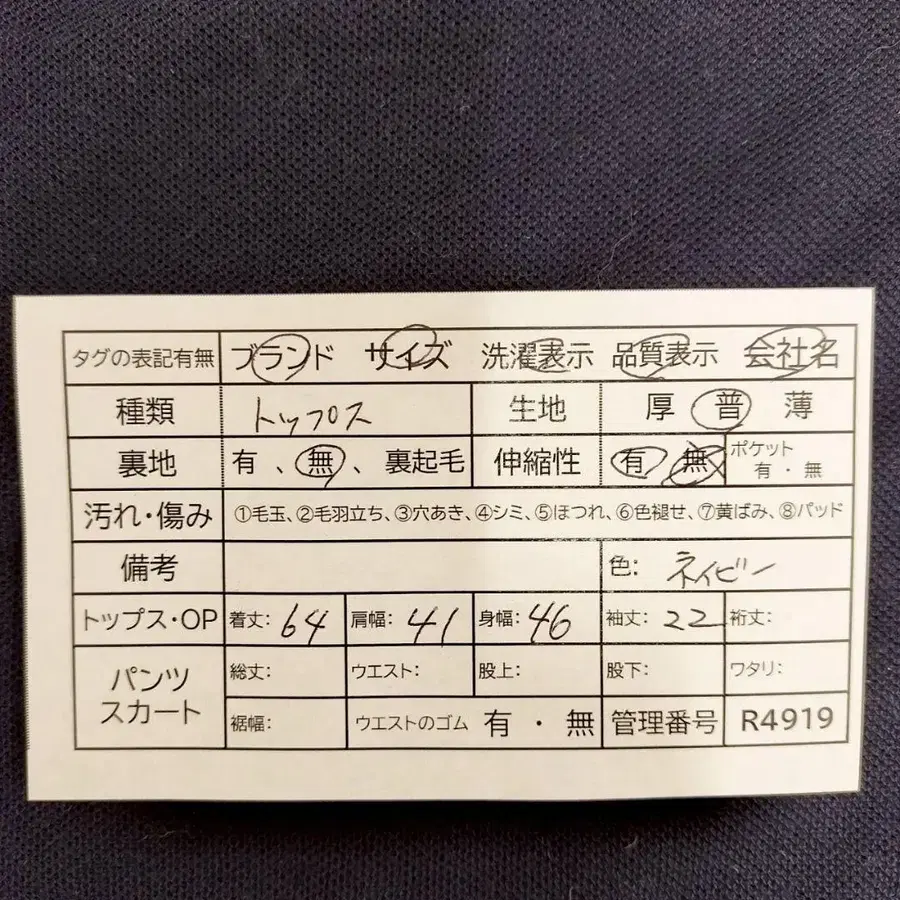 タグの表記有無 ブランド サイズ 洗濯表示 品質表示 会社名
種類 トップス 生地 厚 普 薄
裏地 有 、無、裏起毛 伸縮性 有 無 ポケット 有・無
汚れ・傷み ①毛玉、②毛羽立ち、③穴あき、④シミ、⑤ほつれ、⑥色褪せ、⑦黄ばみ、⑧パッド
備考 色: ネイビー
トップス・OP 着丈: 64 肩幅: 41 身幅: 46 袖丈: 22 裄丈:
パンツ スカート 総丈: ウエスト: 股上: 股下: ワタリ:
裾幅: ウエストのゴム 有・無 管理番号 R4919